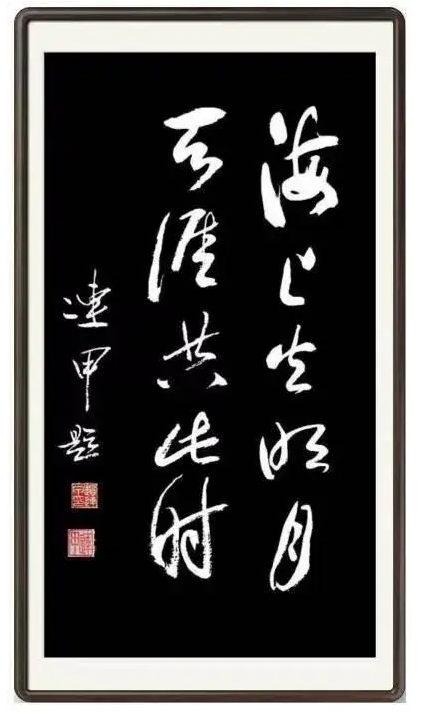 海上生明月
天涯共此时
连甲题